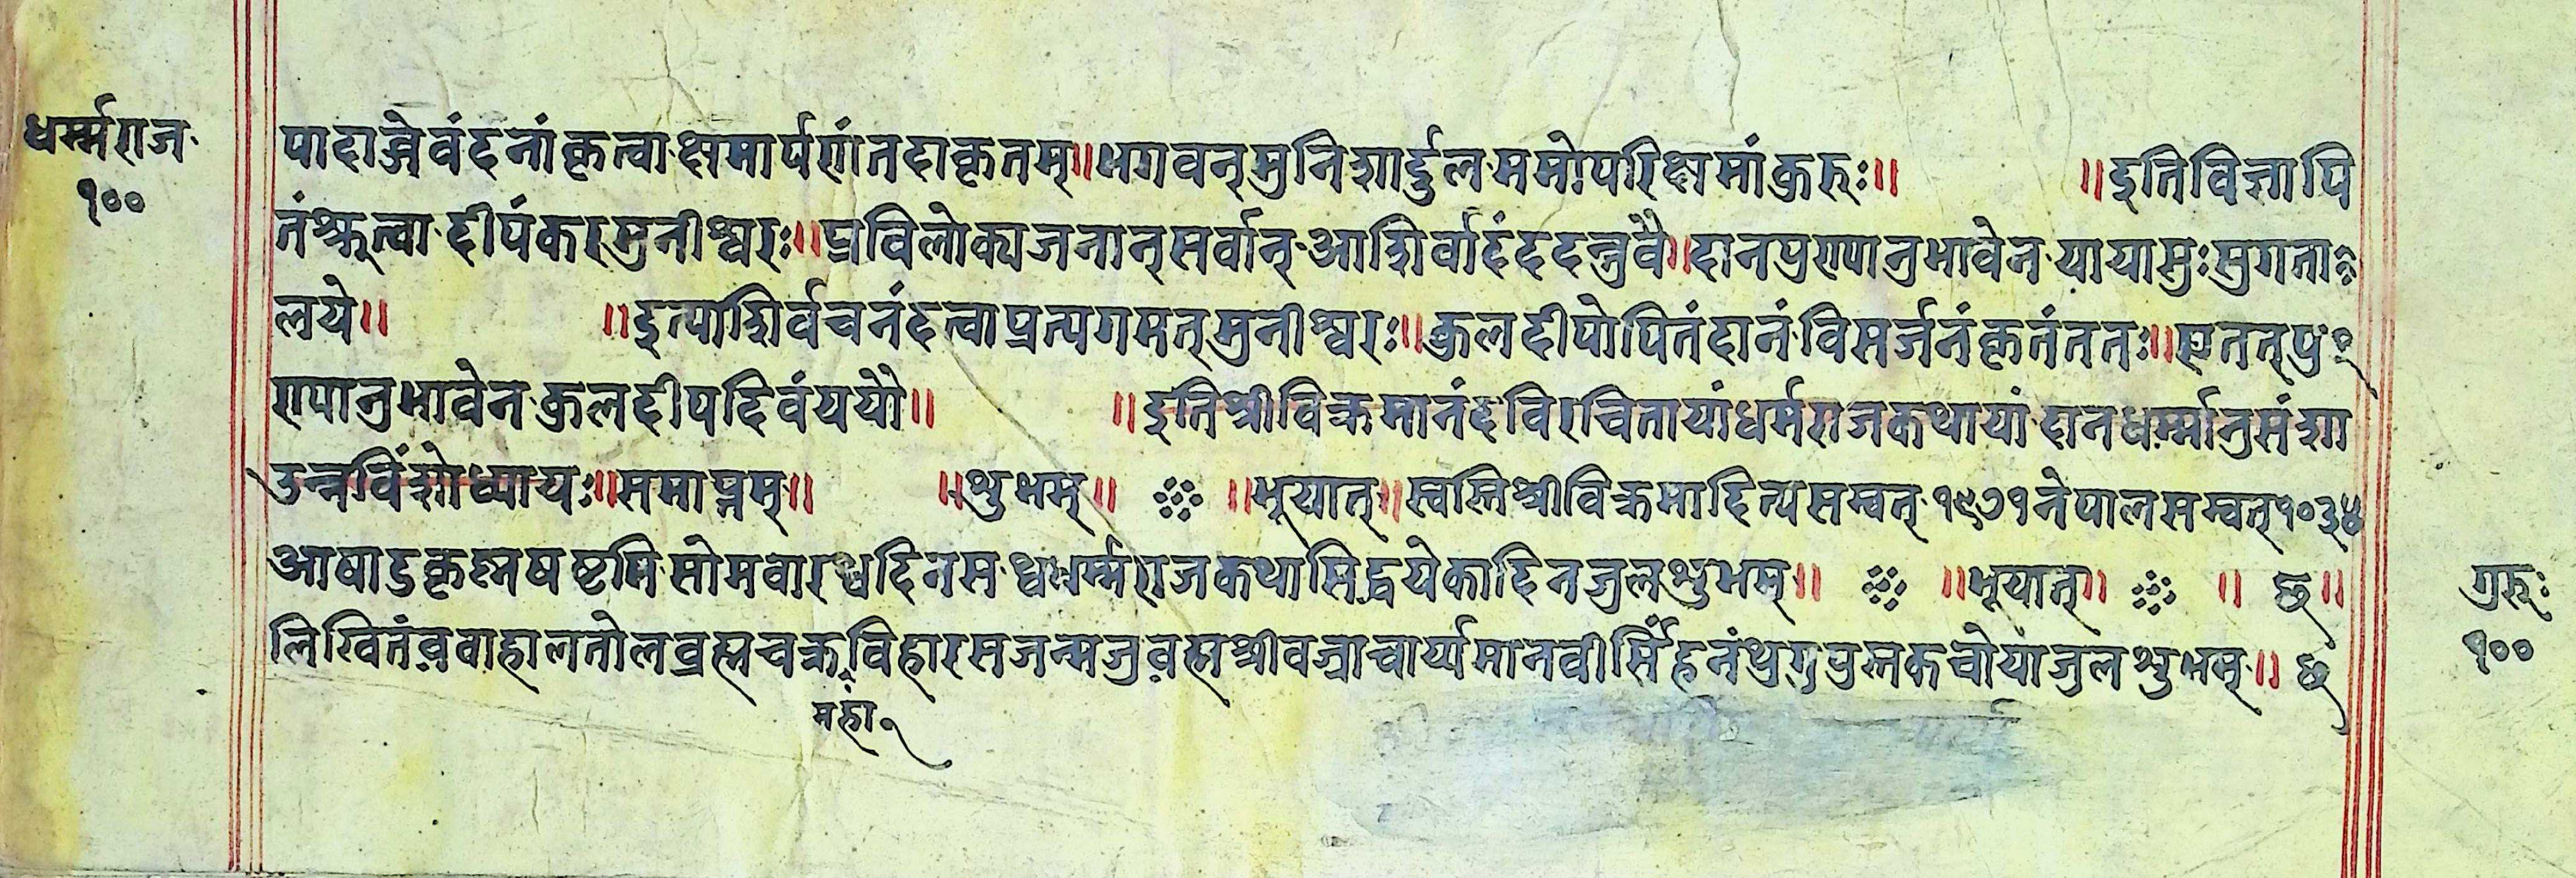 धर्म्मराज
१००
पादाब्जेवंदनांकृत्वा क्षमार्पणंतदाकृतम्॥भगवन्मुनिशार्द्दुल ममोपरिक्षमांकुरुः॥ ॥इतिविज्ञापि
तंश्रूत्वा दीपंकरमुनीश्वरः॥प्रविलोक्यजनान्सर्वान् आशिर्वादंददन्त्रुवै॥दानपुण्यानुभावेन यायासुःसुगता
लये॥ ॥इत्याशिर्वचनंदत्वाप्रत्यगमत्मुनीश्वरः॥कुलदीपोपितंदानं विसर्जनंकृतंततः॥एतत्पु
ण्यानुभावेन कुलदीपदिवंययौ॥ ॥इतिश्रीविक्रमानंदविरचितायांधर्मराजकथायां दानधर्म्मानुसंशा
उन्नविंशोध्यायः॥समाप्तम्॥ ॥शुभम्॥ ॥भूयात्॥स्वस्तिश्रीविक्रमादित्यसम्वत् १९७१नेपालसम्वत्१०३४
आषाढकृष्णषष्टमि सोमवारथ्वदिनस थ्वधर्म्मराजकथासिद्धयेकादिनजुलशुभम्॥ ॥भूयात्॥ ॥ छ॥
लिखितंववाहालतोलव्रह्मचक्रविहारसजन्मजुवह्मश्रीवज्राचार्य्यमानवीरसिंहनंथुगुपुस्तकचोयाजुलशुभम्॥ छ
महा
गुरुः
१००